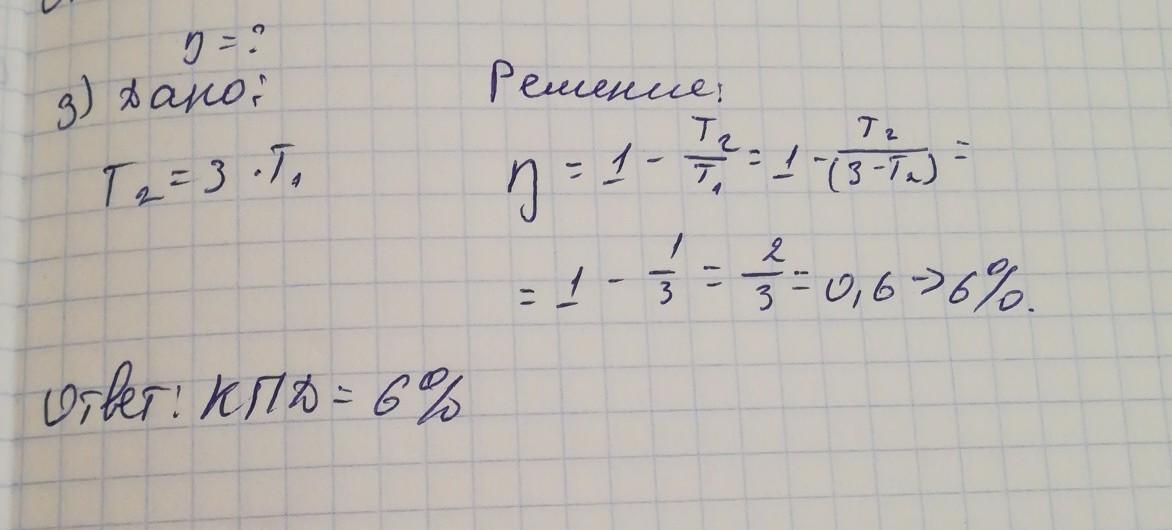 η = ?
3) Дано:
T₂ = 3 · T₁
Решение:
η = 1 - T₂/T₁ = 1 - T₂/(3-T₂) =
= 1 - 1/3 = 2/3 = 0,6 → 6%.
Ответ: КПД = 6%